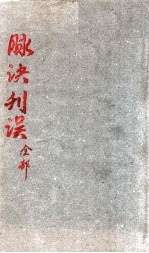 脉诀刊误全部